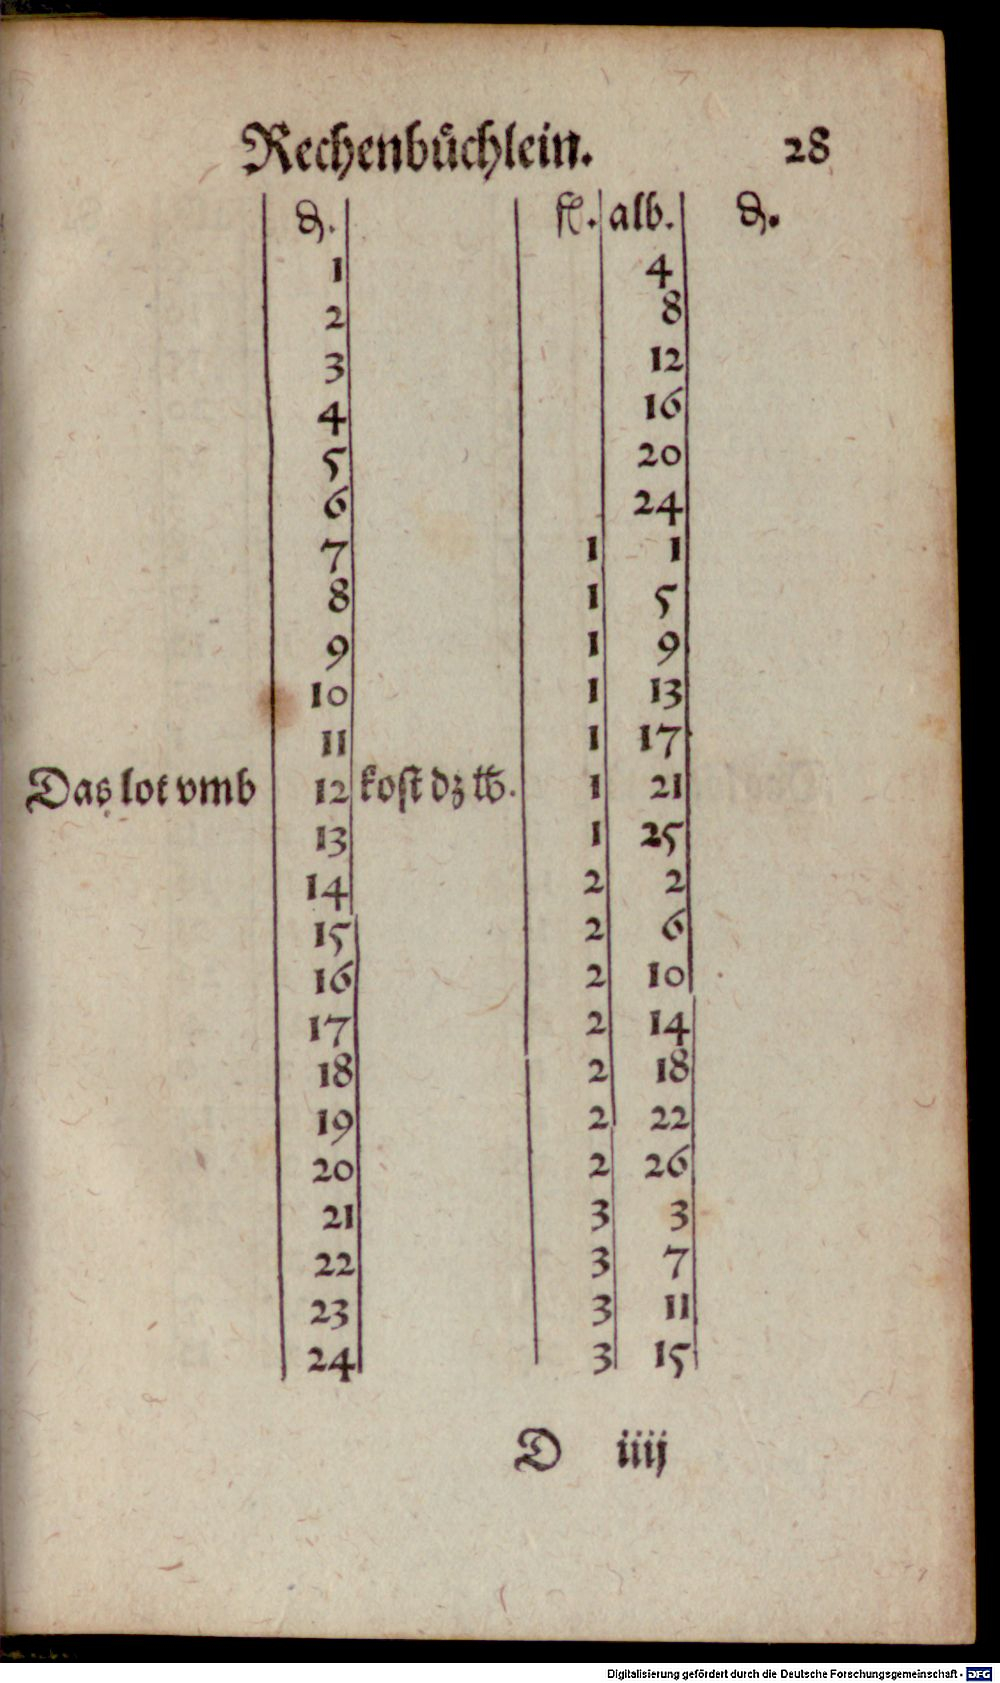 Rechenbůchlein. 28
₰. fl. alb. ₰.
1 4
2 8
3 12
4 16
5 20
6 24
7 1 1
8 1 5
9 1 9
10 1 13
11 1 17
Das lot vmb 12 kost dz ℔. 1 21
13 1 25
14 2 2
15 2 6
16 2 10
17 2 14
18 2 18
19 2 22
20 2 26
21 3 3
22 3 7
23 3 11
24 3 15
D iiij
Digitalisierung gefördert durch die Deutsche Forschungsgemeinschaft - DFG